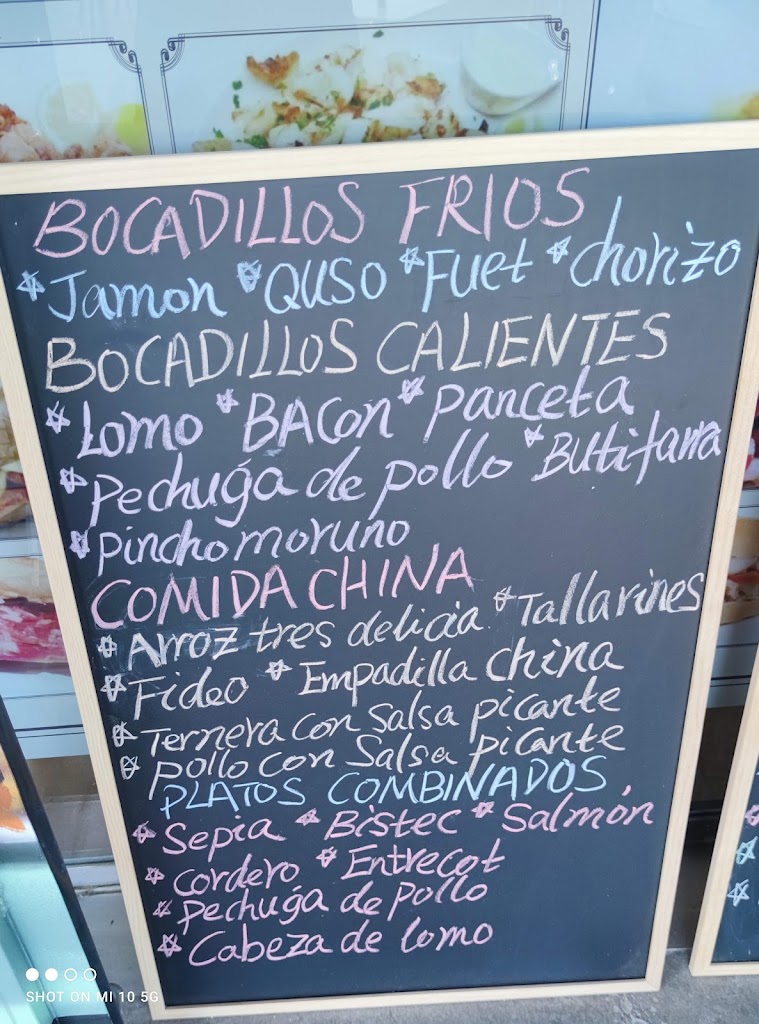 BOCADILLOS FRIOS
* Jamon * QUSO * Fuet * chorizo
BOCADILLOS CALIENTES
* Lomo * BACon * panceta
* Pechuga de pollo * Butifarra
* pincho moruno
COMIDA CHINA
* Arroz tres delicia * Tallarines
* Fideo * Empadilla china
* Ternera con salsa picante
* pollo con salsa picante
PLATOS COMBINADOS
* Sepia * Bistec * Salmón
* cordero * Entrecot
* Pechuga de pollo
* Cabeza de lomo
SHOT ON MI 10 5G